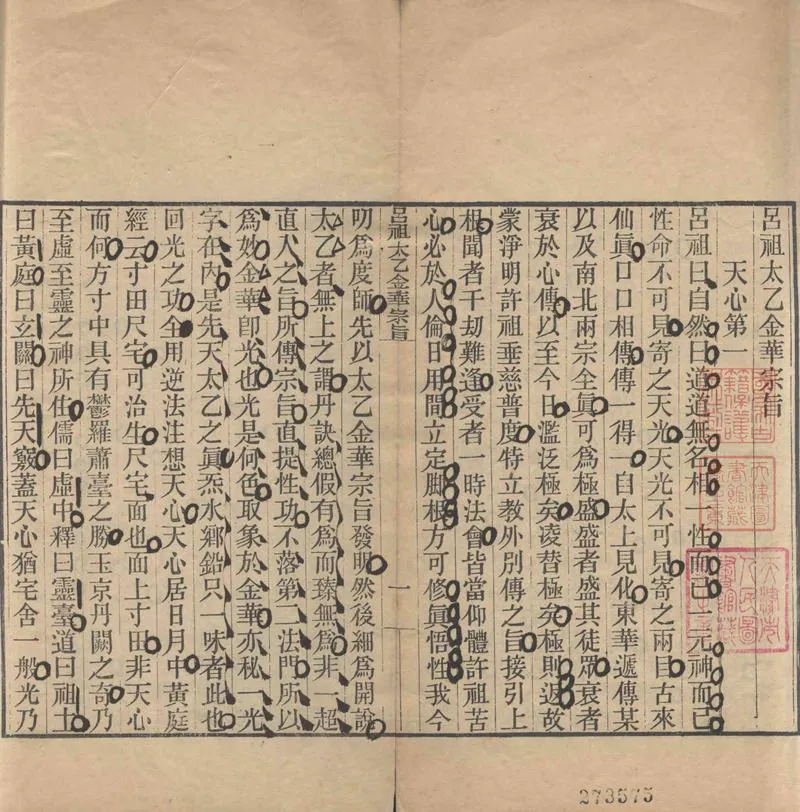 呂祖太乙金華宗旨
天心第一
呂祖曰自然曰道道無名相一性而已一元神而已
性命不可見寄之天光天光不可見寄之兩目古來
仙眞口口相傳傳一得一自太上見化東華遞傳某
以及南北兩宗全眞可爲極盛盛者盛其徒眾衰者
衰於心傳以至今日濫泛極矣凌替極矣極則返故
蒙淨明許祖垂慈普度特立教外別傳之旨接引上
根聞者千刧難逢受者一時法會皆當仰體許祖苦
心必於人倫日用間立定脚根方可修眞悟性我今
呂祖太乙金華宗旨 一
叨爲度師先以太乙金華宗旨發明然後細爲開說
太乙者無上之謂丹訣總假有爲而臻無爲非一超
直入之旨所傳宗旨直提性功不落第二法門所以
爲妙金華卽光也光是何色取象於金華亦秘一光
字在內是先天太乙之眞炁水鄉鉛只一味者此也
回光之功全用逆法注想天心天心居日月中黃庭
經云寸田尺宅可治生尺宅面也面上寸田非天心
而何方寸中具有鬱羅蕭臺之勝玉京丹闕之奇乃
至虛至靈之神所住儒曰虛中釋曰靈臺道曰祖土
曰黃庭曰玄關曰先天竅蓋天心猶宅舍一般光乃
273575